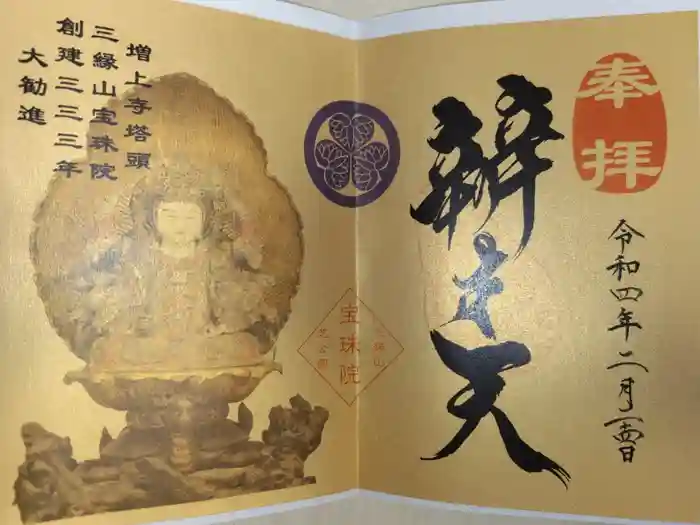 奉拝
辨才天
令和四年二月一四日
増上寺塔頭
三縁山宝珠院
創建三三三年
大勧進
宝珠院
三縁山
芝公園